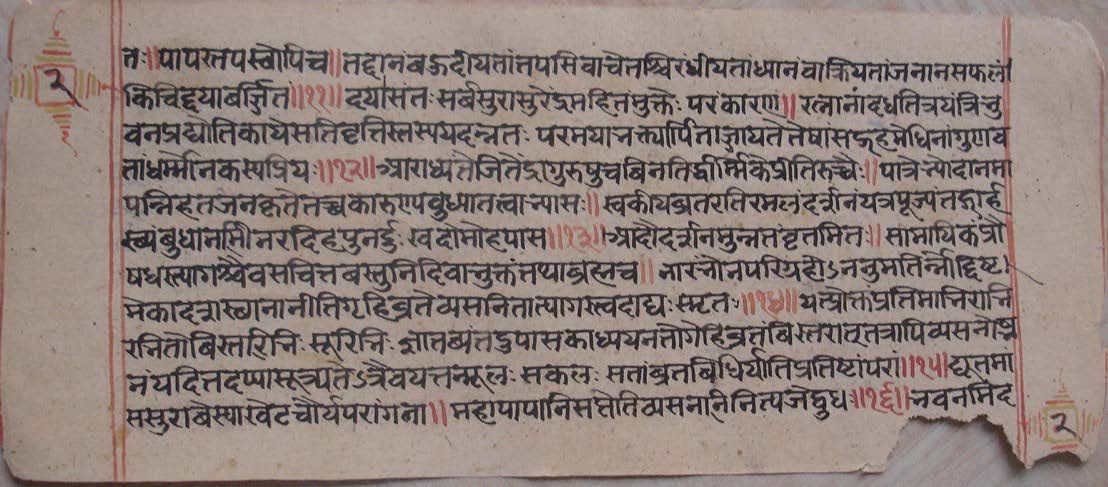 तः॥पापस्तपस्वोपिच॥तद्दानंबऊदीयतांतपसिवाचेतश्चिरंधीयतांध्यानंवाक्रियतांजनानसफलं
किंचिद्दयाबर्ज्जितं॥११॥दयासंतःसर्बसुरासुरेंद्रमहितंमुक्तेःपरंकारणं॥रत्नानांदधतित्रयंत्रिभु
वनप्रद्योतिकायेसतिवृत्तिस्तस्ययदन्नतःपरमयाभक्त्यार्पिताज्जायतेतेषांसद्गृहमेधिनांगुणव
तांधर्म्मोनकस्यप्रियः॥१२॥आराध्यंतेजिनेंद्रागुरुषुचबिनतिर्द्धार्म्मिकेप्रीतिरुच्चैः॥पात्रेभ्योदानमा
पन्निहतजनकृतेतच्चकारुण्यबुध्यातत्वाभ्यासः॥स्वकीयब्रतरतिरमलंदर्शनंयत्रपूज्यंतद्गार्ह
स्थ्यंबुधानामितरदिहपुनर्दुःखदोमोहपासः॥१३॥आदौदर्शनमुन्नतंवृतमितः॥सामायिकंप्रो
षधस्त्यागश्चैवसचित्तबस्तुनिदिवाभुक्तंतथाब्रह्मच॥नारंभोनपरिग्रहोऽननुमतिर्न्नोद्दिष्ट।
मेकादशस्थानानीतिगृहिब्रतेव्यसनितात्यागस्त्वदाद्यःस्मृतः॥१४॥यत्प्रोक्तंप्रतिमाभिराभि
रभितोबिस्तरिभिःसूरिभिःज्ञातब्यंतदुपासकाध्ययनतोगेहिब्रतंबिस्तरात्तत्रापिव्यसनोझ्
नंयदितदप्यासूत्र्यतेऽत्रैवयत्तन्मूलःसकलःसतांब्रतबिधिर्यातिप्रतिष्टांपरां॥१५॥द्यूतमां
ससुराबेस्याखेटचौर्यपरांगना॥महापापानिसप्तेतिव्यसनानिनित्यजेद्बुधः॥१६॥भवनमिद
२
२